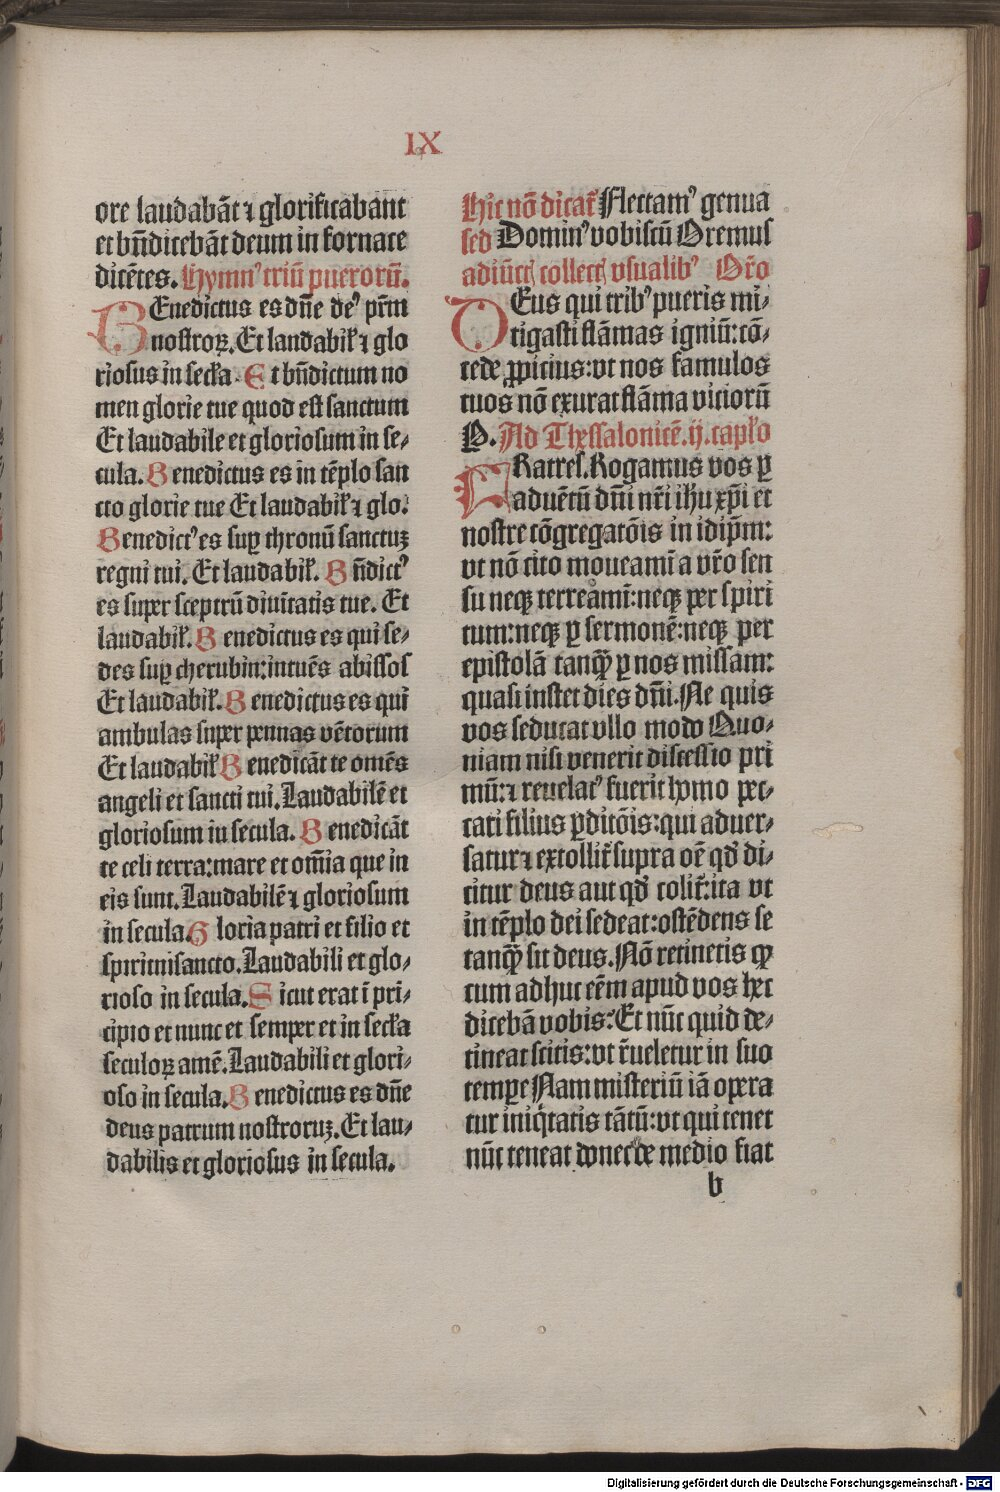 IX
ore laudabāt ⁊ glorificabant
et bn̄dicebāt deum in fornace
dicētes. Hymnꝰ triū puerorū.
BEnedictus es dn̄e deꝰ pr̄m
nostroꝝ. Et laudabil̛ ⁊ glo
riosus in secl̛a. Et bn̄dictum no
men glorie tue quod est sanctum
Et laudabile et gloriosum in se⸗
cula. Benedictus es in tēplo san
cto glorie tue Et laudabil̛ ⁊ glo.
Benedictꝰ es suꝑ thronū sanctuꝫ
regni tui. Et laudabil̛. Bn̄dictꝰ
es super sceptrū diuītatis tue. Et
laudabil̛. Benedictus es qui se⸗
des suꝑ cherubin: intuēs abissos
Et laudabil̛. Benedictus es qui
ambulas super pennas vētorum
Et laudabil̛ Benedicāt te omēs
angeli et sancti tui. Laudabilē et
gloriosum in secula. Benedicāt
te celi terra: mare et om̄ia que in
eis sunt. Laudabilē ⁊ gloriosum
in secula. Gloria patri et filio et
spirituisancto. Laudabili et glo⸗
rioso in secula. Sicut erat ī pri⸗
cipio et nunc et semper et in secl̛a
seculoꝝ amē. Laudabili et glori⸗
oso in secula. Benedictus es dn̄e
deus patrum nostroruꝫ. Et lau⸗
dabilis et gloriosus in secula.
Hic nō dicat̄ Flectamꝰ genua
sed Dominꝰ vobiscū Oremus
adiūct̛ collect̛ vsualibꝰ Or̄o
DEus qui tribꝰ pueris mi⸗
tigasti flāmas igniū: cō⸗
cede ꝓpicius: vt nos famulos
tuos nō exurat flāma vitiorū
P. Ad Thessalonicē. ij. capl̛o
FRatres. Rogamus vos ꝑ
aduētū dn̄i nr̄i ih̄u xp̄i et
nostre cōgregatōis in idip̄m:
vt nō cito moueami̅ a vr̄o sen
su neqꝫ terreami̅: neqꝫ per spiri
tum: neqꝫ ꝑ sermonē: neqꝫ per
epistolā tanqꝫ̄ ꝑ nos missam:
quasi instet dies dn̄i. Ne quis
vos seducat vllo modo Quo⸗
niam nisi venerit discessio pri
mū: ⁊ reuelatꝰ fuerit homo pec⸗
cati filius ꝑditōis: qui aduer⸗
satur ⁊ extollit̄ supra oē qd̛ di⸗
citur deus aut qd̛ colit̄: ita vt
in tēplo dei sedeat: ostēdens se
tanqꝫ̄ sit deus. Nō retinetis ꝙ
cum adhuc eēm apud vos hec
dicebā vobis: Et nūc quid de⸗
tineat scitis: vt r̄ueletur in suo
tempe Nam misteriū iā opera
tur iniq̇tatis tātū: vt qui tenet
nūc teneat donec de medio fiat
b
Digitalisierung gefördert durch die Deutsche Forschungsgemeinschaft - DFG